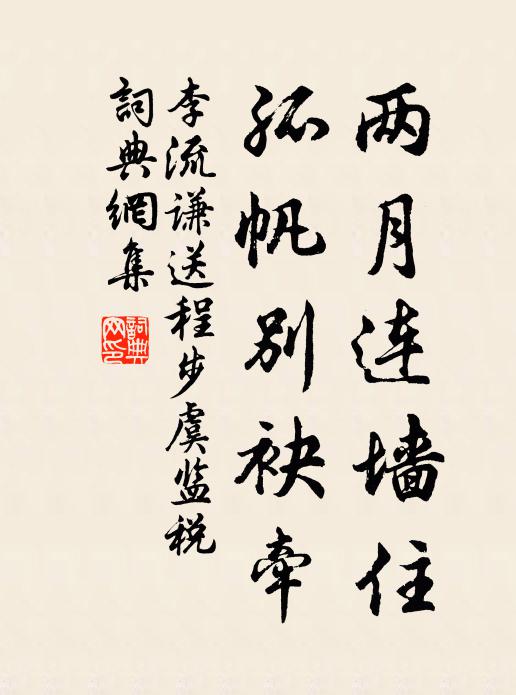 两月连墙住
孤帆别袂牵
李流谦送程步虞监税
詞典網集
詞典网印